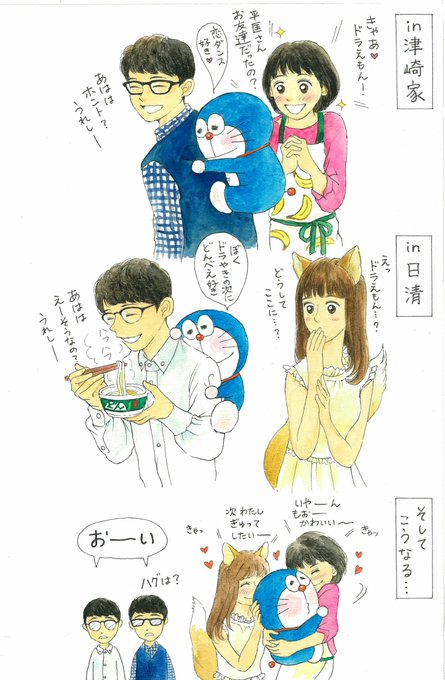 in津崎家
きゃあ♥
ドラえもん－！
平匡さん
お友達だったの？
恋ダンス
好き♥
あはは
ホント？
うれしー
in日清
えっ
ドラえもん…？
どうして
ここに…？
ぼく
ドラやきの次に
どんべえ好き
あはは
えーそうなの？
うれしー
そして
こうなる…
いやーん
もおー
かわいい～
きゃっ
次わたし
ぎゅって
したい～
きゃっ
おーい
ハグは？